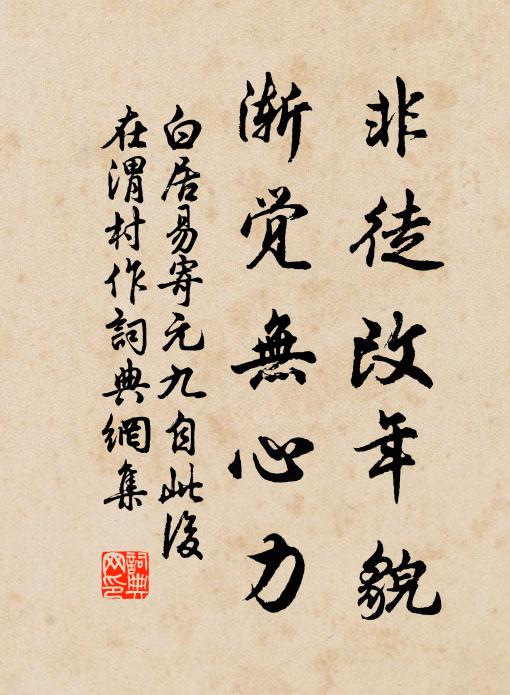 非徒改年貌
渐觉無心力
白居易寄元九自此後
在渭村作詞典網集
詞典网印